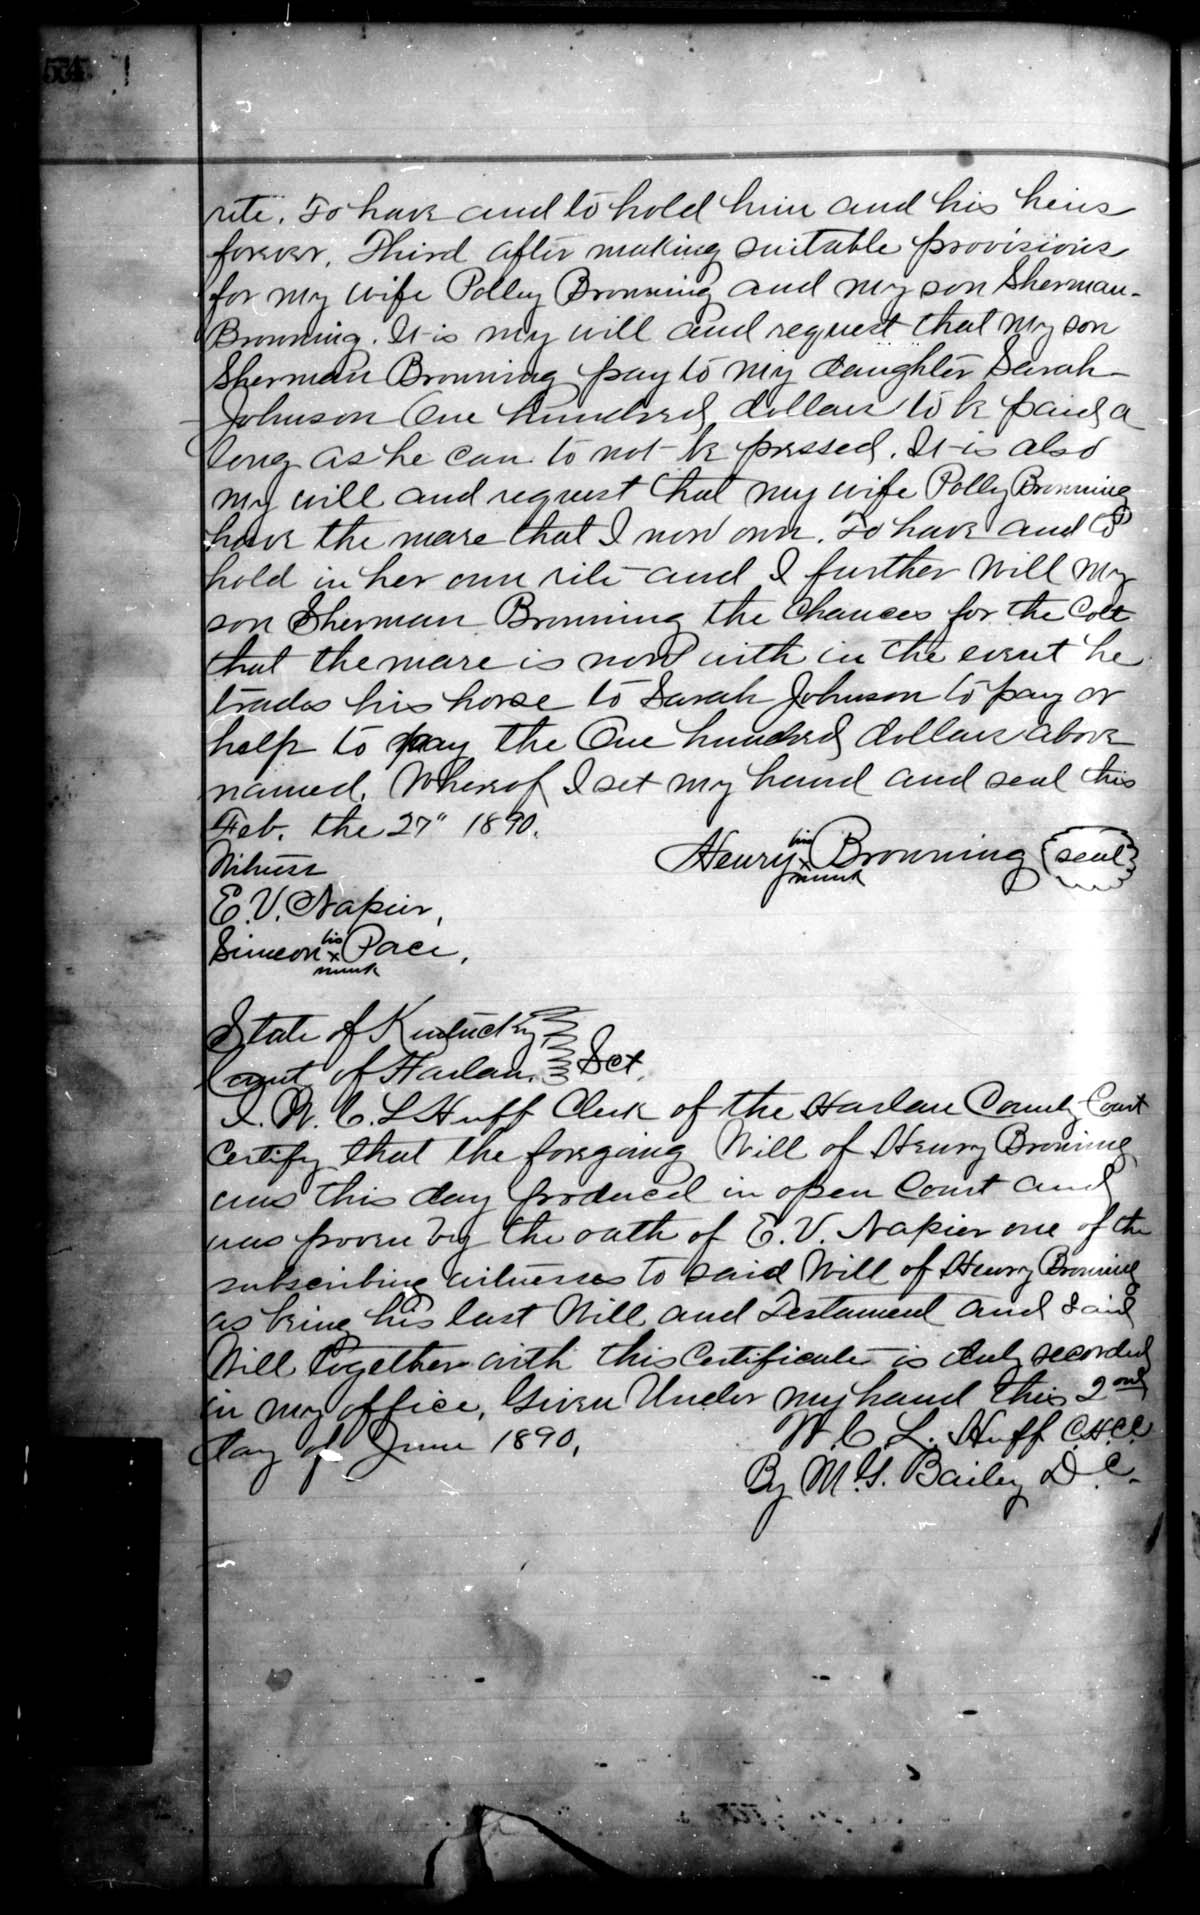 534
rite. To have and to hold him and his heirs
forever. Third after making suitable provisions
for my wife Polley Browning and my son Sherman
Browning. It is my will and request that my son
Sherman Browning pay to my daughter Sarah
Johnson One hundred dollars to be paid a
long as he can to not be pressed. It is also
my will and request that my wife Polly Browning
have the mare that I now own. To have and to
hold in her own rite and I further Will my
son Sherman Browning the Chances for the Colt
that the mare is now with in the event he
trades his horse to Sarah Johnson to pay or
help to pay the One hundred dollars above
named. Whereof I set my hand and seal this
Feb. the 27" 1890.
Henry his x mark Browning (seal)
Witness
E. V. Napier,
Simeon his x mark Pace,
State of Kentucky
County of Harlan. Sct.
I. W. C. L. Huff Clerk of the Harlan County Court
Certify that the foregoing Will of Henry Browning
was this day produced in open Court and
was proven by the oath of E. V. Napier one of the
subscribing witnesses to said Will of Henry Browning
as being his last Will and Testament and said
Will together with this Certificate is duly recorded
in my office. Given Under my hand this 2nd
day of June 1890.
W. C. L. Huff C.H.C.C.
By M. G. Bailey D.C.